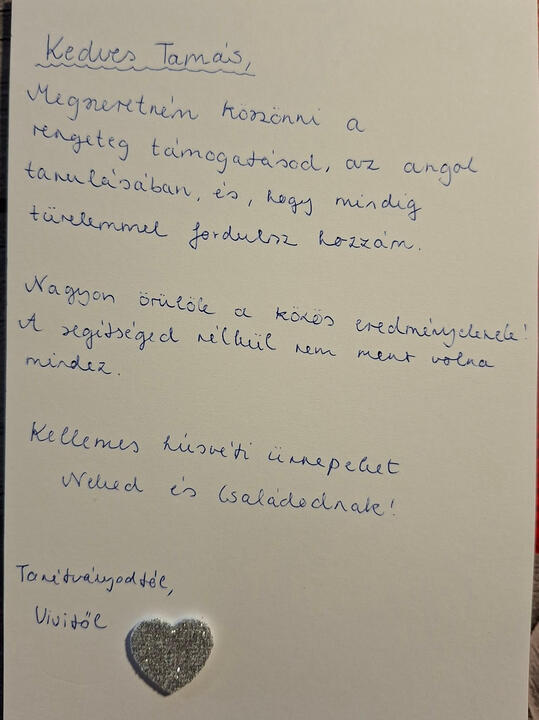 Kedves Tamás,
Megszeretném köszönni a
rengeteg támogatásod, az angol
tanulásában, és, hogy mindig
türelemmel fordulsz hozzám.
Nagyon örülök a közös eredményeknek!
A segítséged nélkül nem ment volna
mindez.
Kellemes húsvéti ünnepeket
Neked és Családodnak!
Tanítványodtól,
Vivitől